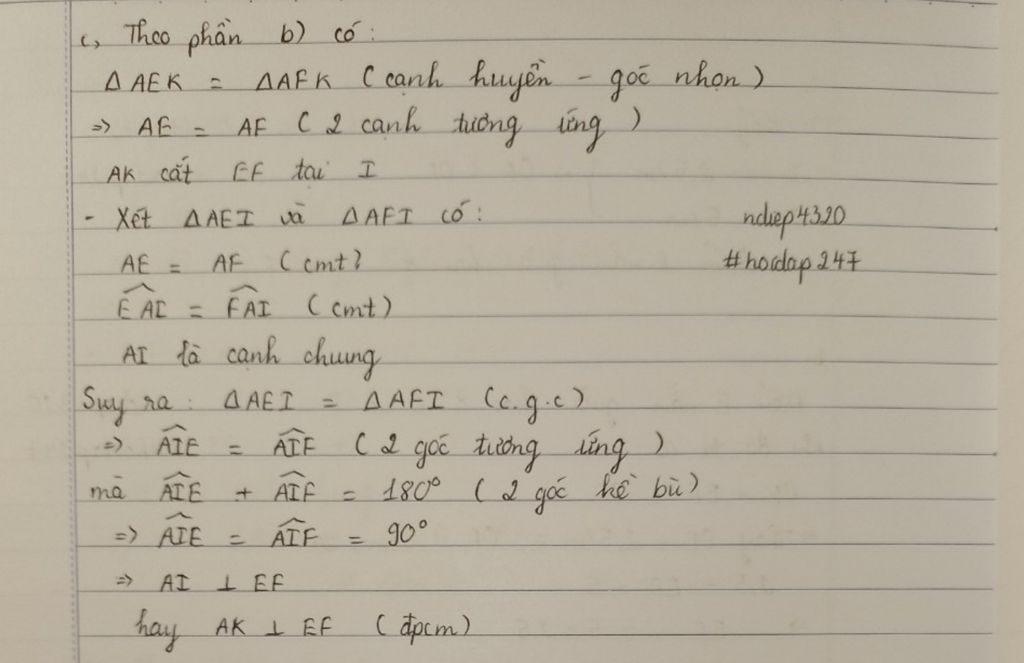 c, Theo phần b) có:
ΔAEK = ΔAFK (cạnh huyền - góc nhọn)
=> AE = AF (2 cạnh tương ứng)
AK cắt EF tại I
- Xét ΔAEI và ΔAFI có:
ndiep4320
AE = AF (cmt)
#hoidap247
\widehat{EAI} = \widehat{FAI} (cmt)
AI là cạnh chung
Suy ra: ΔAEI = ΔAFI (c.g.c)
=> \widehat{AIE} = \widehat{AIF} (2 góc tương ứng)
mà \widehat{AIE} + \widehat{AIF} = 180° (2 góc kề bù)
=> \widehat{AIE} = \widehat{AIF} = 90°
=> AI ⊥ EF
hay AK ⊥ EF (đpcm)